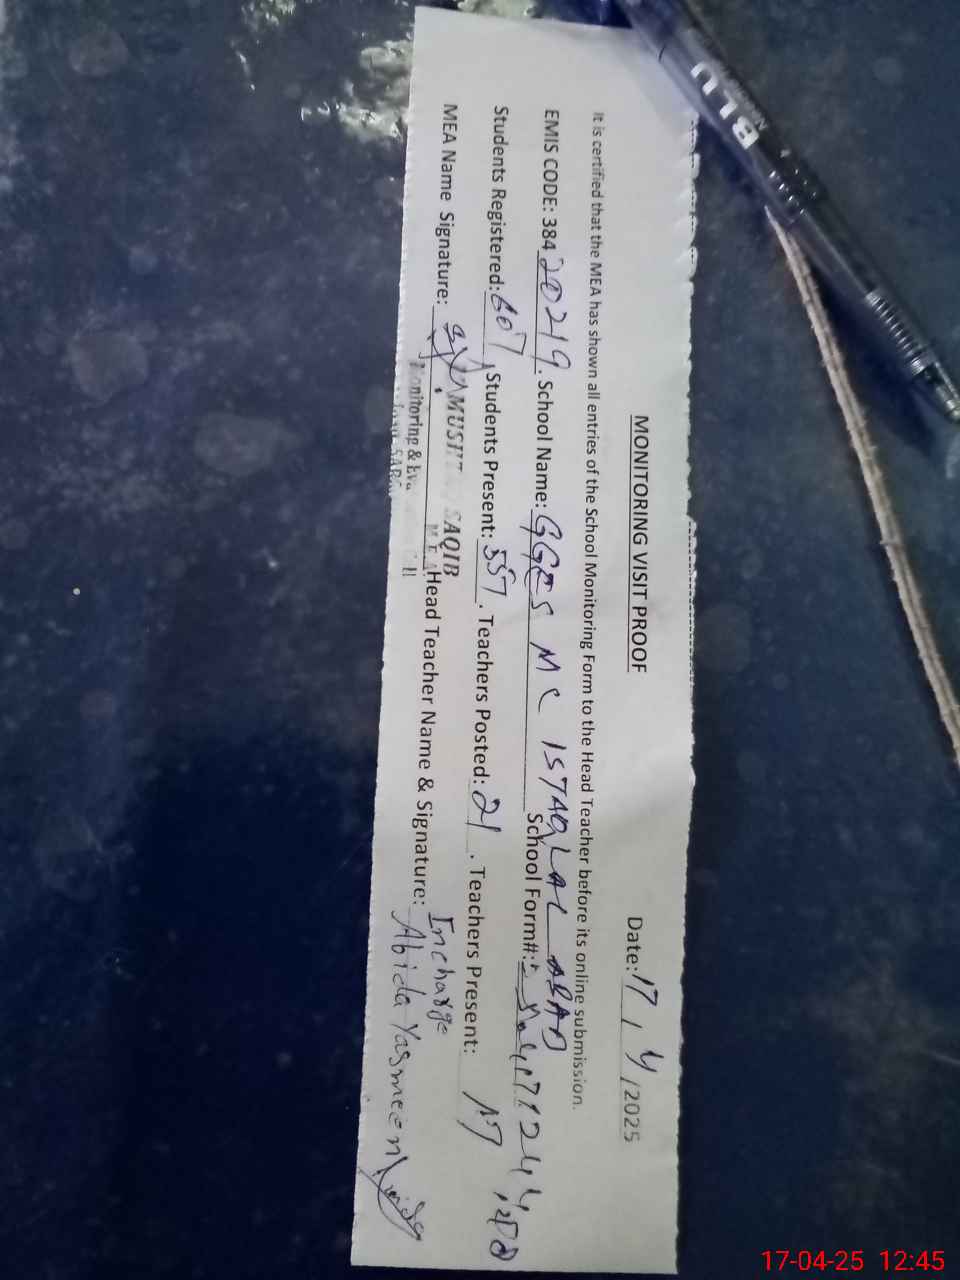 MONITORING VISIT PROOF
Date: 17 / 4 / 2025
It is certified that the MEA has shown all entries of the School Monitoring Form to the Head Teacher before its online submission.
EMIS CODE: 384 20219. School Name: GGES MC ISTAQLAL ABAD School Form#:
Students Registered: 607, Students Present: 557. Teachers Posted: 21. Teachers Present: 17
MEA Name Signature: Head Teacher Name & Signature: Incharge
Abida Yasmeen
SAQIB
Monitoring &
BLU
17-04-25 12:45